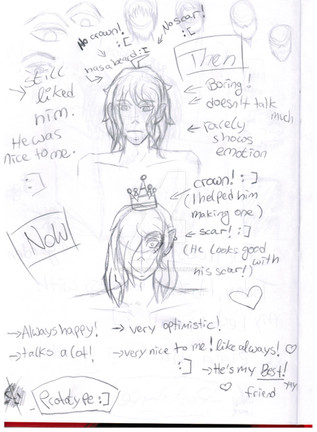 No crown!
:[
No scar!
:[
has a beard :[
Then
Still
liked
him.
He was
nice to me.
:]
Boring!
doesn't talk
much
rarely
shows
emotion
crown! :]
(I helped him
making one)
scar! :]
(He looks good
with
his scar!)
Now
→Always happy!
→ very optimistic!
→talks a lot!
→very nice to me! like always! ♡
:]
→He's my Best!
friend
Prototype :]